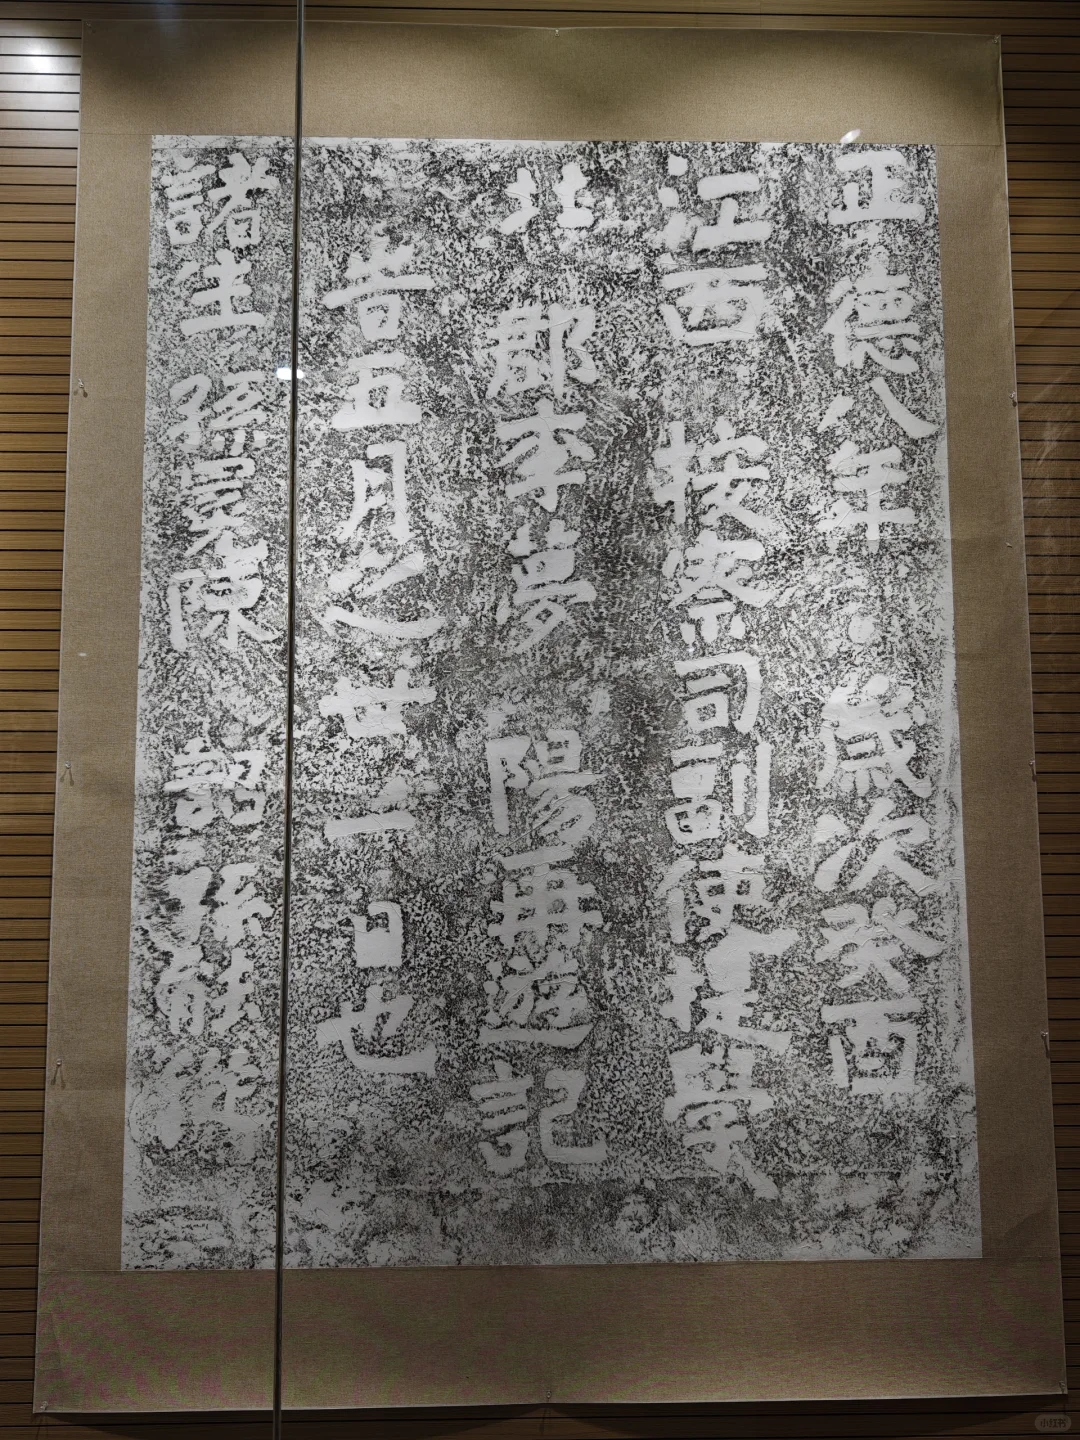 正德八年歲次癸酉
江西按察司副使提學
北郡李夢陽再遊記
旹五月之廿二日也
諸生孫陳韶
小红书